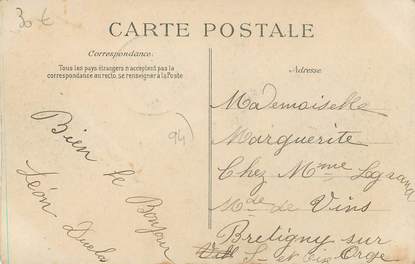 30€
CARTE POSTALE
Correspondance:
Tous les pays étrangers n'acceptent pas la
correspondance au recto, se renseigner à la Poste
Adresse
94
Bien le Bonjour
Léon
Mademoiselle
Marguerite
Chez Mme Legrand
Mde de Vins
Bretigny sur
Orge
S. et Oise